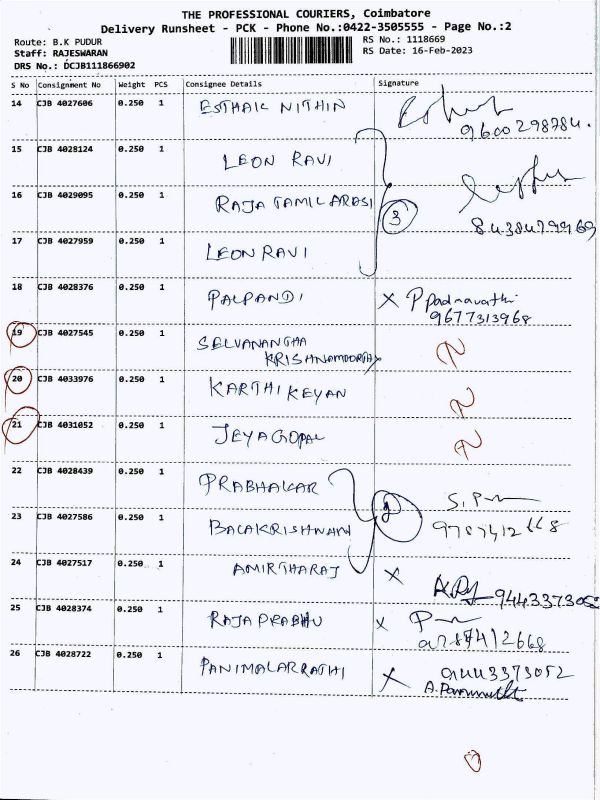 THE PROFESSIONAL COURIERS, Coimbatore
Delivery Runsheet - PCK - Phone No.:0422-3505555 - Page No.:2
Route: B.K PUDUR
RS No.: 1118669
Staff: RAJESWARAN
RS Date: 16-Feb-2023
DRS No.: DCJB111866902
S No Consignment No Weight PCS Consignee Details Signature
14 CJB 4027606 0.250 1 ESTHAK NITHIN
9600298784.
15 CJB 4028124 0.250 1 LEON RAVI
16 CJB 4029095 0.250 1 RAJA TAMIL ARASI 3
8438479969
17 CJB 4027959 0.250 1 LEON RAVI
18 CJB 4028376 0.250 1 PALPANDI X P Padmavathi
9677313968
19 CJB 4027545 0.250 1 SELVANANTHA
KRISHNAMOORTHY
20 CJB 4033976 0.250 1 KARTHIKEYAN
21 CJB 4031052 0.250 1 JEYAGOPAL
22 CJB 4028439 0.250 1 PRABHAKAR
23 CJB 4027586 0.250 1 BALAKRISHNAN
24 CJB 4027517 0.250 1 AMIRTHARAJ X
25 CJB 4028374 0.250 1 RAJA PRABHU X
26 CJB 4028722 0.250 1 PANIMALARRATHI X 9443373052